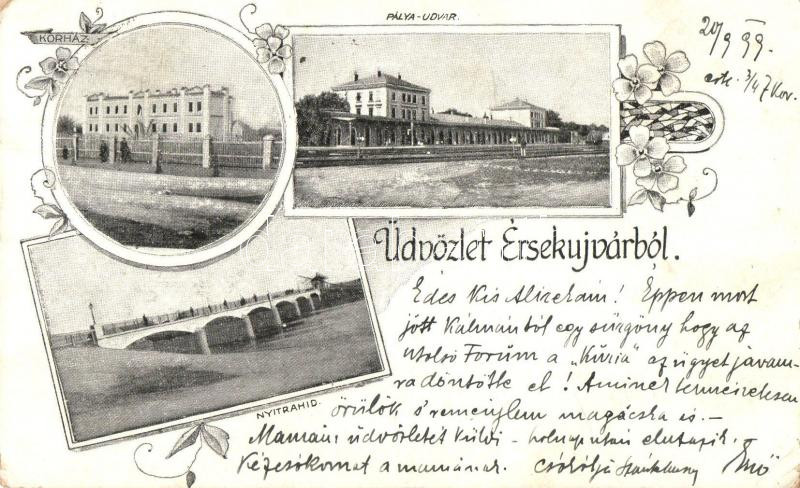 KÓRHÁZ.
PÁLYA-UDVAR.
20/9 99.
Üdvözlet Érsekujvárból.
Édes kis Alizekám! Éppen most
jött Kálmántól egy sürgöny hogy az
utolsó Forúm a „Kúria" az ügyet javam-
ra döntötte el! Aminek termeszetesen
örülök s remenylem magácska is. –
NYITRAHID.
Mamám üdvözletét küldi – holnap után elutazik.
Kézcsókomat a mamának. csókolja